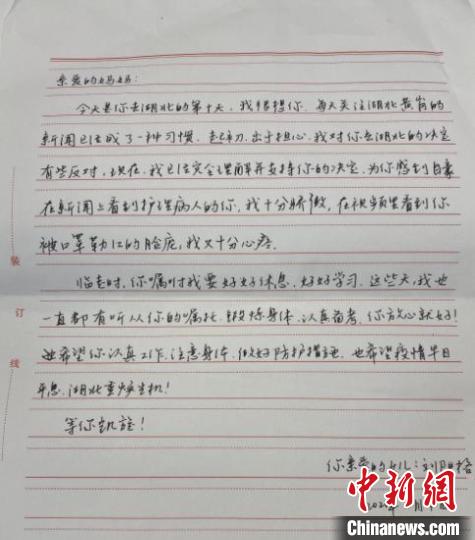 亲爱的妈妈：
今天是你去湖北的第十天，我很想你。每天关注湖北黄冈的
新闻已经成了一种习惯。起初，出于担心，我对你去湖北的决定
有些反对，现在，我已经完全理解并支持你的决定，为你感到自豪
在新闻上看到护理病人的你，我十分骄傲，在视频里看到你
被口罩勒红的脸庞，我又十分心疼。
临走时，你嘱咐我要好好休息，好好学习。这些天，我也
一直都有听从你的嘱托，锻炼身体，认真备考，你放心就好！
也希望你认真工作，注意身体，做好防护措施，也希望疫情早日
平息，湖北重焕生机！
等你凯旋！
你亲爱的女儿：刘
装
订
线
中新网
Chinanews.com